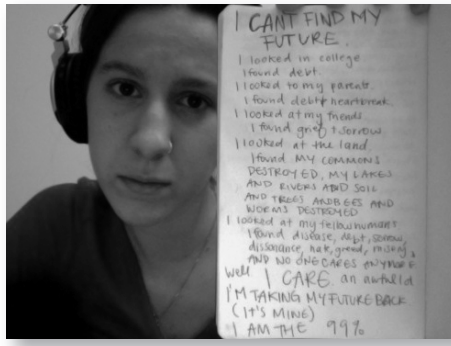 I CANT FIND MY
FUTURE.
I looked in college
I found debt.
I looked to my parents.
I found debt & heartbreak.
I looked at my friends
I found grief & sorrow
I looked at the land.
I found MY COMMONS
DESTROYED, MY LAKES
AND RIVERS AND SOIL
AND TREES AND BEES AND
WORMS DESTROYED
I looked at my fellow humans
I found disease, debt, sorrow,
dissonance, hate, greed, misery,
AND NO ONE CARES ANYMORE
Well I CARE. an awful
I'M TAKING MY FUTURE BACK.
(IT'S MINE)
I AM THE 99%